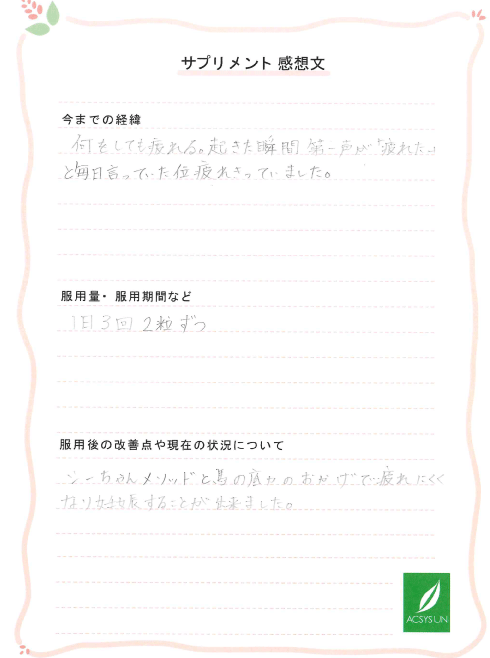 サプリメント 感想文
今までの経緯
何をしても疲れる。起きた瞬間 第一声が「疲れた」
と毎日言っていた位疲れきっていました。
服用量・服用期間など
1日3回 2粒ずつ
服用後の改善点や現在の状況について
シーちゃんメソッドと馬の底力のおかげで疲れにくく
なり妊娠することが出来ました。
ACSYSUN